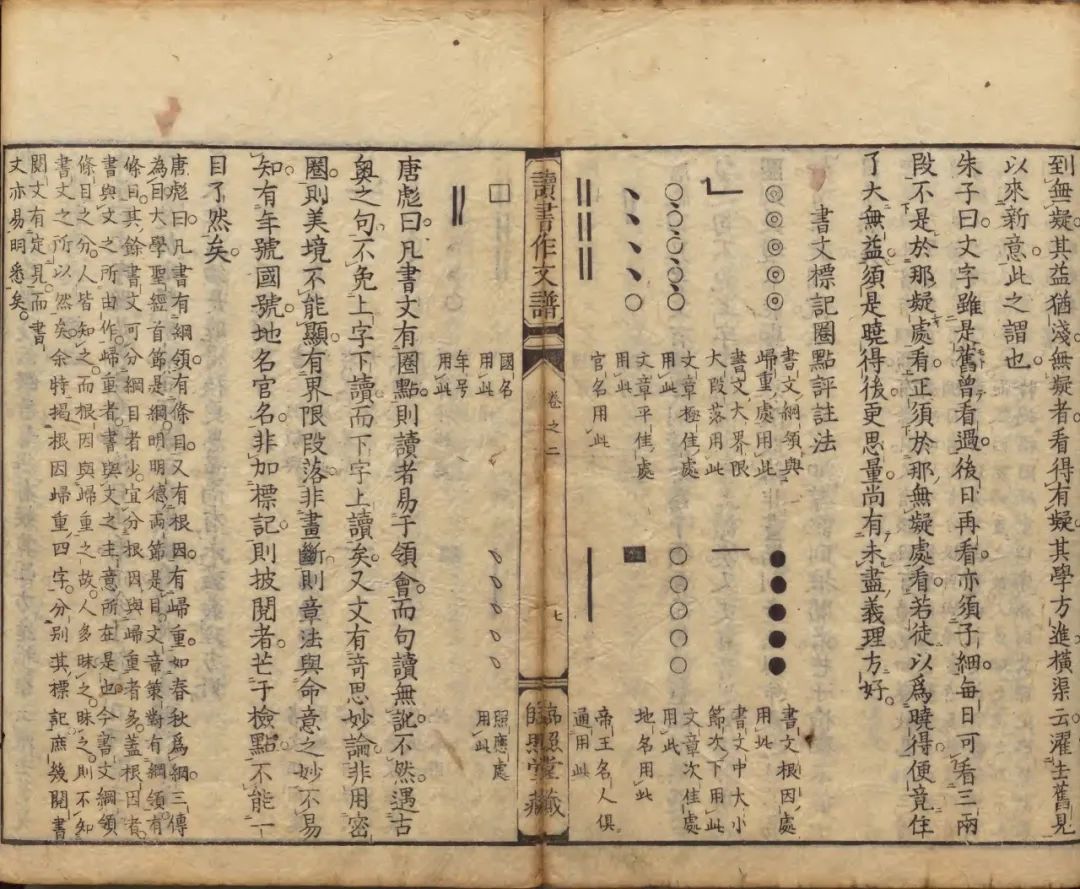 到無疑其益猶淺無疑者看得有疑其學方進橫渠云濯去舊見
以來新意此之謂也
朱子曰文字雖是舊曾看過後日再看亦須子細每日可看三兩
段不是於那疑處看正須於那無疑處看若徒以爲曉得便竟住
了大無益須是曉得後更思量尚有未盡義理方好
書文標記圈點評註法
◎◎◎◎◎ 書文綱領與
歸重處用此
●●●●● 書文根因處
用此
書文大界限
大段落用此
書文中大小
節次下用此
文章極佳處
用此
○○○○○ 文章次佳處
用此
文章平佳處
用此
地名用此
官名用此
帝王名人俱
通用此
讀書作文譜
卷之二
七
歸照堂藏
□ 國名
用此
照應處
用此
年号
用此
唐彪曰凡書文有圈點則讀者易于領會而句讀無訛不然遇古
奧之句不免上字下讀而下字上讀矣又文有奇思妙論非用密
圈則美境不能顯有界限段落非畫斷則章法與命意之妙不易
知有年號國號地名官名非加標記則披閱者芒于檢點不能一
目了然矣
唐彪曰凡書有綱領有條目又有根因有歸重如春秋爲綱三傳
為目大學聖經首節是綱明明德兩節是目文章策對有綱領有
條目其餘書文可分綱目者少宜分根因與歸重者多蓋根因者
書與文之所由作歸重者書與文之主意所在是也今書文綱領
條目之分人皆知之而根因與歸重之故人多昧之昧之則不知
書文之所以然矣余特揭根因歸重四字分別其標記庶幾閱書
閱文有定見而書
文亦易明悉矣